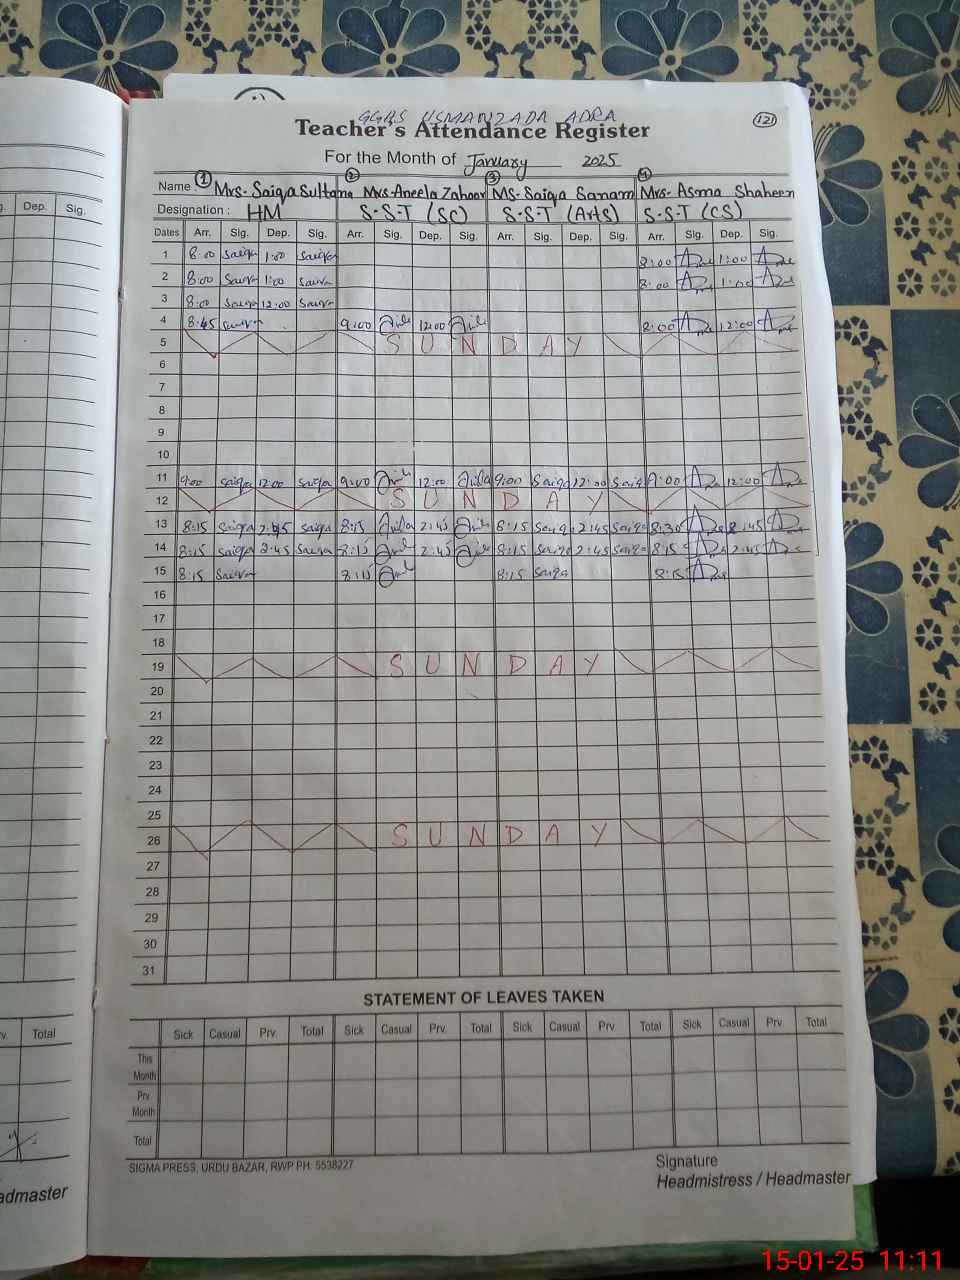 GGHS USMANZADA ADRA
Teacher's Attendance Register
121
For the Month of January 2025
Name : 1 Mrs. Saiqa Sultana 2 Mrs. Aneela Zahoor 3 Ms. Saiqa Sanam 4 Mrs. Asma Shaheen
Designation : HM S.S.T (SC) S.S.T (Arts) S.S.T (CS)
Dates Arr. Sig. Dep. Sig. Arr. Sig. Dep. Sig. Arr. Sig. Dep. Sig. Arr. Sig. Dep. Sig.
g. Dep. Sig.
1 8:00 Saiqa 1:00 Saiqa 8:00 1:00
2 8:00 Saiqa 1:00 Saiqa 8:00 1:00
3 8:00 Saiqa 12:00 Saiqa
4 8:45 Saiqa 9:00 12:00 8:00 12:00
5 SUNDAY
6
7
8
9
10
11 9:00 Saiqa 12:00 Saiqa 9:00 12:00 9:00 Saiqa 12:00 Saiq 12:00
12 SUNDAY
13 8:15 Saiqa 2:45 Saiqa 8:15 2:45 8:15 Saiqa 2:45 Saiqa 8:30
14 8:15 Saiqa 2:45 Saiqa 8:15 2:45 8:15 Saiqa 2:45 Saiqa 8:15 2:45
15 8:15 Saiqa 8:15 8:15 Saiqa 8:15
16
17
18
19 SUNDAY
20
21
22
23
24
25
26 SUNDAY
27
28
29
30
31
STATEMENT OF LEAVES TAKEN
Sick Casual Prv. Total Sick Casual Prv. Total Sick Casual Prv. Total Sick Casual Prv. Total
v. Total
This Month
Prv. Month
Total
SIGMA PRESS, URDU BAZAR, RWP PH: 5538227
Signature
Headmistress / Headmaster
admaster
15-01-25 11:11